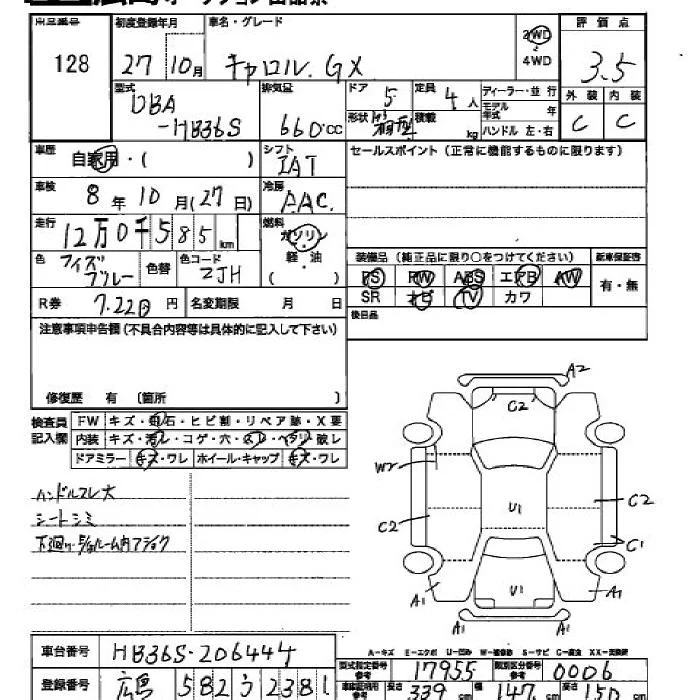 出品番号 初度登録年月 車名・グレード 2WD 4WD 評価点
128 27年10月 キャロル. GX 3.5
型式 DBA-HB36S 排気量 660cc ドア 5 定員 4人 ディーラー・並行
形状 箱型 積載 kg モデル年式 年 外装 内装
ハンドル 左・右 C C
車歴 自家用・( ) シフト IAT セールスポイント (正常に機能するものに限ります)
車検 8年10月(27日) 冷房 AAC.
走行 12万0千585km 燃料 ガソリン 軽・油 ( )
装備品 (純正品に限り○をつけてください) 新車保証書
色 ブルー 色替 色コード ZJH PS PW ABS エアB AW 有・無
R券 7.220円 名変期限 月 日 SR ナビ TV カワ
後日品
注意事項申告欄 (不具合内容等は具体的に記入して下さい)
修復歴 有 〔箇所 〕
検査員記入欄 FW キズ・飛石・ヒビ割・リペア跡・X要
内装 キズ・汚レ・コゲ・穴・スレ・ヘタリ・破レ
ドアミラー キズ・ワレ ホイール・キャップ キズ・ワレ
ハンドルスレ大
シートシミ
A2
C2
W2
C2
C2
U1
C1
U1
A1
A1
A1
A1
A-キズ E-エクボ U-凹み W-補修跡 S-サビ C-腐食 XX-交換済
車台番号 HB36S-206444
登録番号 広島 582 う 2381
型式指定番号 参考 17955 類別区分番号 参考 0006
長さ 339cm 幅 147cm 高さ 150cm